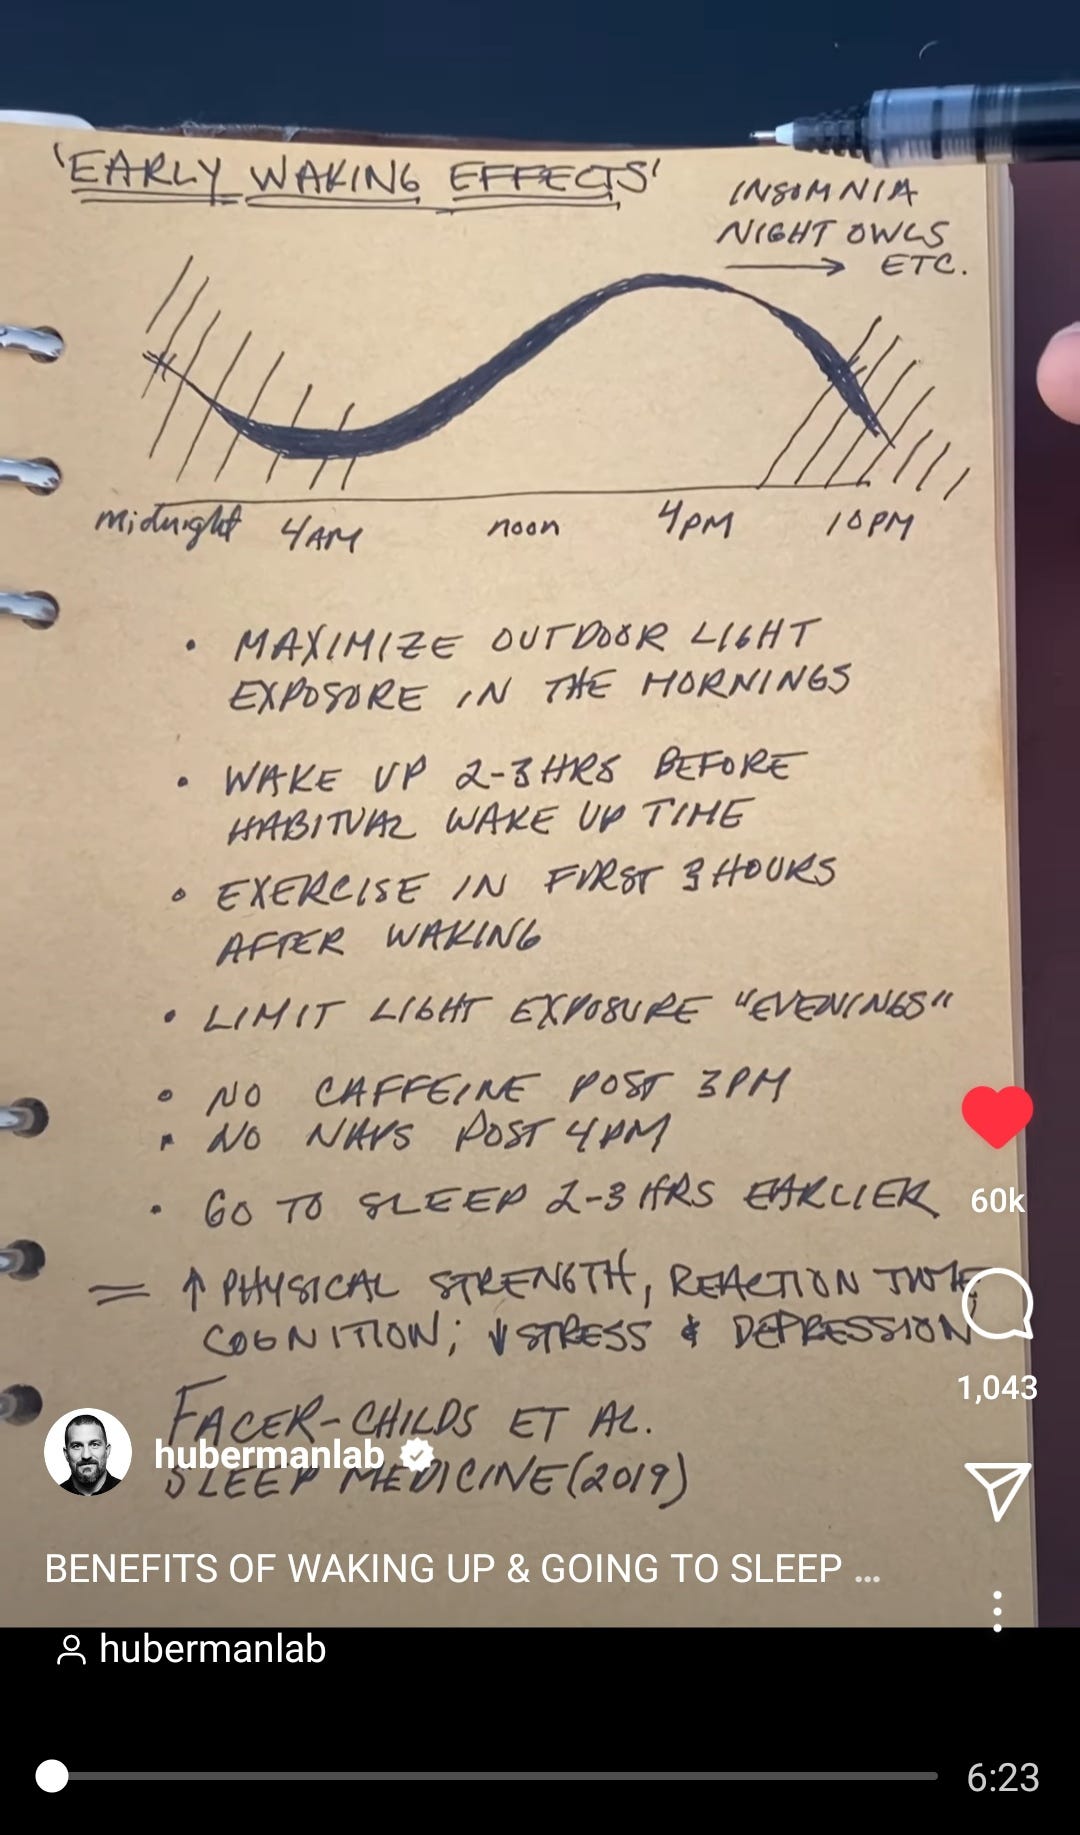 'EARLY WAKING EFFECTS'
INSOMNIA
NIGHT OWLS
ETC.
midnight 4AM noon 4PM 10PM
• MAXIMIZE OUTDOOR LIGHT
EXPOSURE IN THE MORNINGS
• WAKE UP 2-3 HRS BEFORE
HABITUAL WAKE UP TIME
• EXERCISE IN FIRST 3 HOURS
AFTER WAKING
• LIMIT LIGHT EXPOSURE "EVENINGS"
• NO CAFFEINE POST 3PM
• NO NAPS POST 4PM
• GO TO SLEEP 2-3 HRS EARLIER
60k
= ↑ PHYSICAL STRENGTH, REACTION TIME,
COGNITION; ↓ STRESS & DEPRESSION
1,043
FACER-CHILDS ET AL.
hubermanlab
SLEEP MEDICINE (2019)
BENEFITS OF WAKING UP & GOING TO SLEEP ...
hubermanlab
6:23